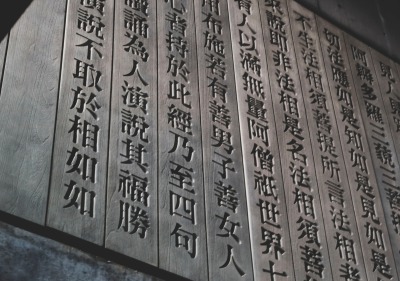 見人見
阿耨多羅三藐三菩
切法應如是知如是見如是
不生法相須菩提所言法相
說即非法相是名法相須菩
有人以滿無量阿僧祇世界七
用布施若有善男子善女人
心者持於此經乃至四句
讀誦為人演說其福勝
演說不取於相如如